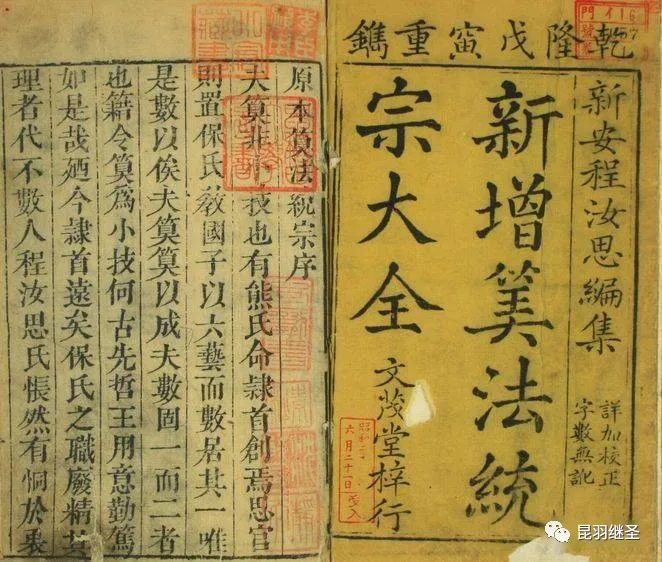 鐫重寅戊隆乾
新安程汝思編集
詳加校正
字數無訛
新增筭法統
宗大全
文茂堂梓行
昭和
六月二十日
原本筭法統宗序
夫筭非小技也有熊氏命隸首創焉思官
則置保氏敎國子以六藝而數居其一唯
是數以俟夫筭筭以成夫數固一而二者
也籍令筭爲小技何古先哲王用意勤篤
如是哉廼今隸首遠矣保氏之職廢精其
理者代不數人程汝思氏悵然有恫於衷
昆羽继圣